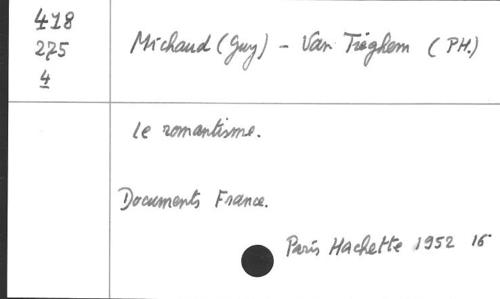 418
275
4
Michaud (Guy) - Van Tieghem (PH.)
Le romantisme.
Documents France.
Paris Hachette 1952 16